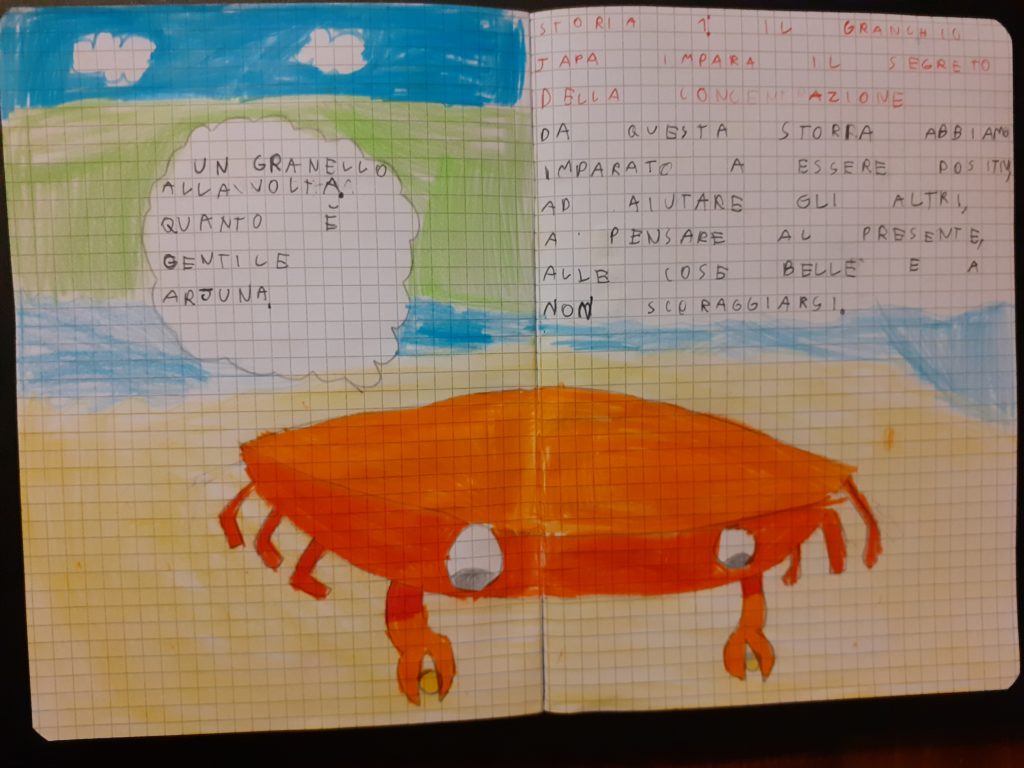 UN GRANELLO
ALLA VOLTA.
QUANTO È
GENTILE
ARJUNA.
STORIA 1: IL GRANCHIO
JAPA IMPARA IL SEGRETO
DELLA CONCENTRAZIONE
DA QUESTA STORIA ABBIAMO
IMPARATO A ESSERE POSITIVI,
AD AIUTARE GLI ALTRI,
A PENSARE AL PRESENTE,
ALLE COSE BELLE E A
NON SCORAGGIARSI.